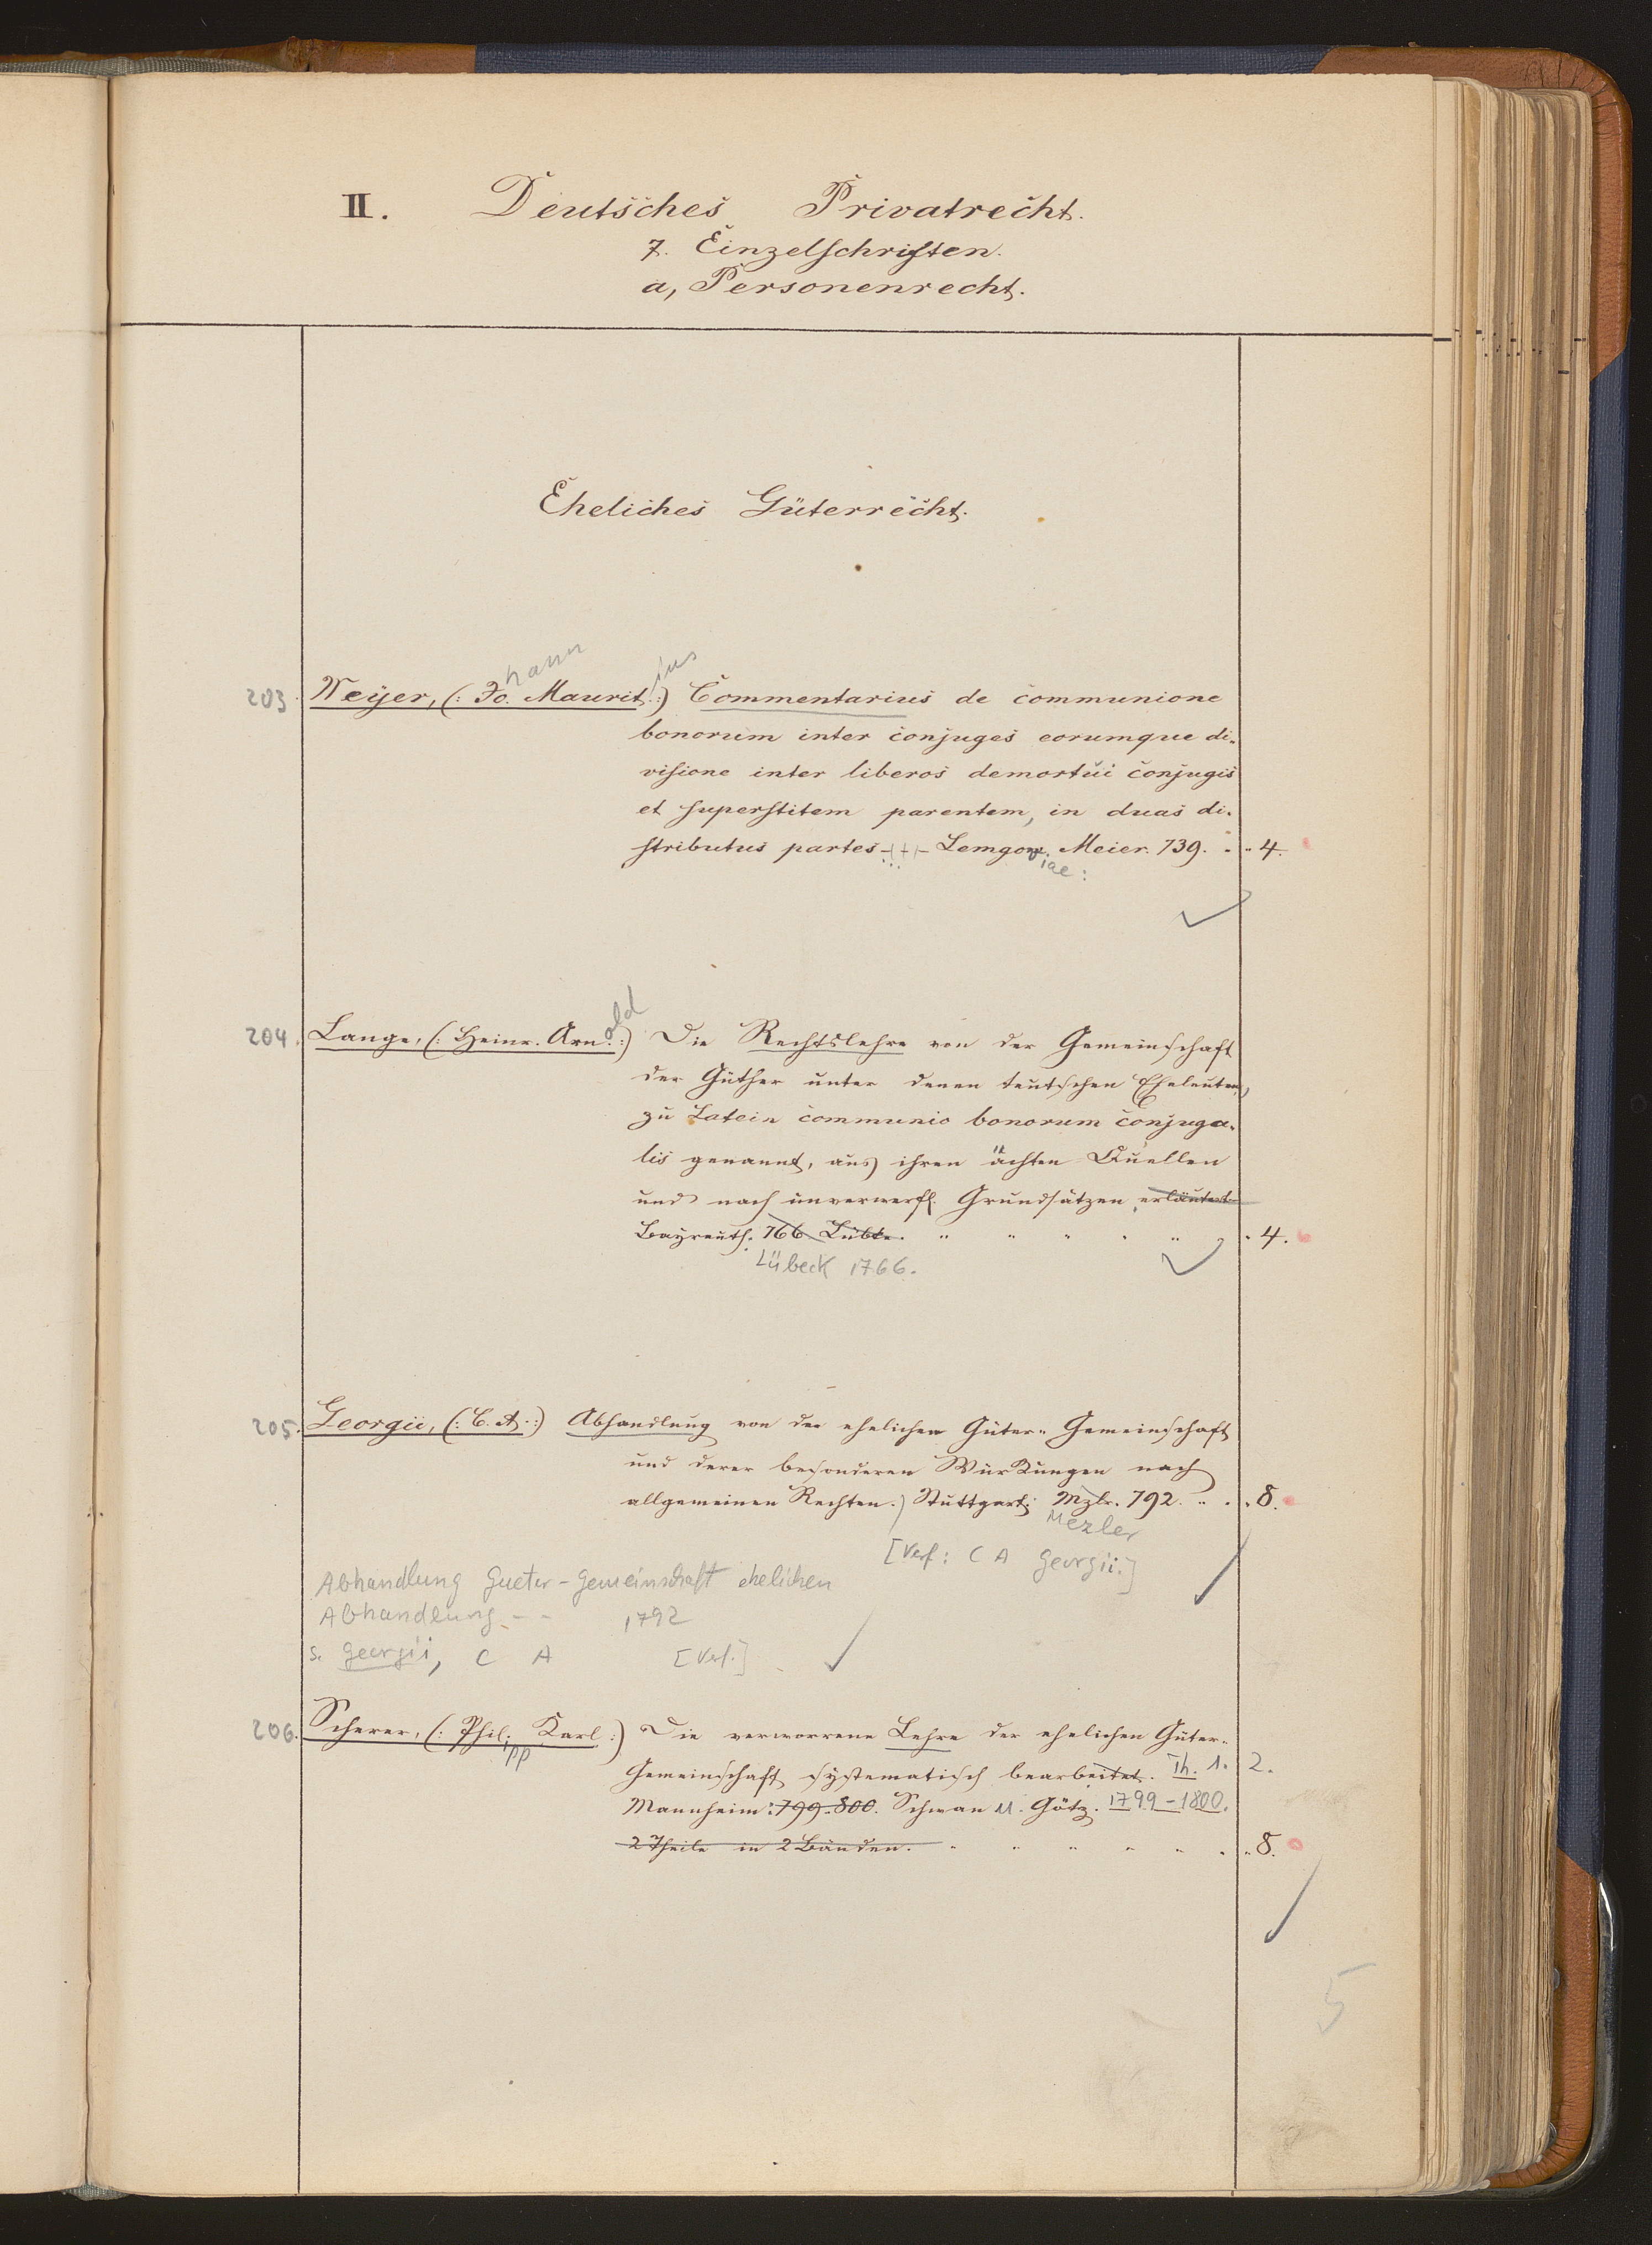 II. Deutsches Privatrecht.
7. Einzelschriften.
a, Personenrecht.
Eheliches Güterrecht.
hann ius
203. Weijer, (: Jo. Maurit.:) Commentarius de communione
bonorum inter conjuges eorumque di-
visione inter liberos demortui conjugis
et superstitem parentem, in duas di-
stributus partes Lemgow. Meier. 739. 4.
iae:
ald
204. Lange, (: Heinr. Arn.:) Die Rechtslehre von der Gemeinschaft
der Güther unter denen teutschen Eheleuten,
zu Latein communio bonorum conjuga-
lis genannt, aus ihren ächten Quellen
und nach unverwerfl. Grundsätzen erläutert
Bayreuth. 766 Lübk. 4.
Lübeck 1766.
205. Georgii, (: C. A.:) Abhandlung von der ehelichen Güter-Gemeinschaft
und derer besonderen Würkungen nach
allgemeinen Rechten. Stuttgart: Mzlr. 792. 8.
Mezler
[Verf: C A Georgii.]
Abhandlung Gueter-Gemeinschaft ehelichen
Abhandlung - - 1792
s. Georgii, C A [Verf.]
206. Scherer, (: Phil. Karl:) Die verworrene Lehre der ehelichen Güter-
ipp
Gemeinschaft systematisch bearbeitet. Th. 1. 2.
Mannheim: 799-800. Schwan u. Götz. 1799-1800.
2 Theile in 2 Bänden. 8.
5